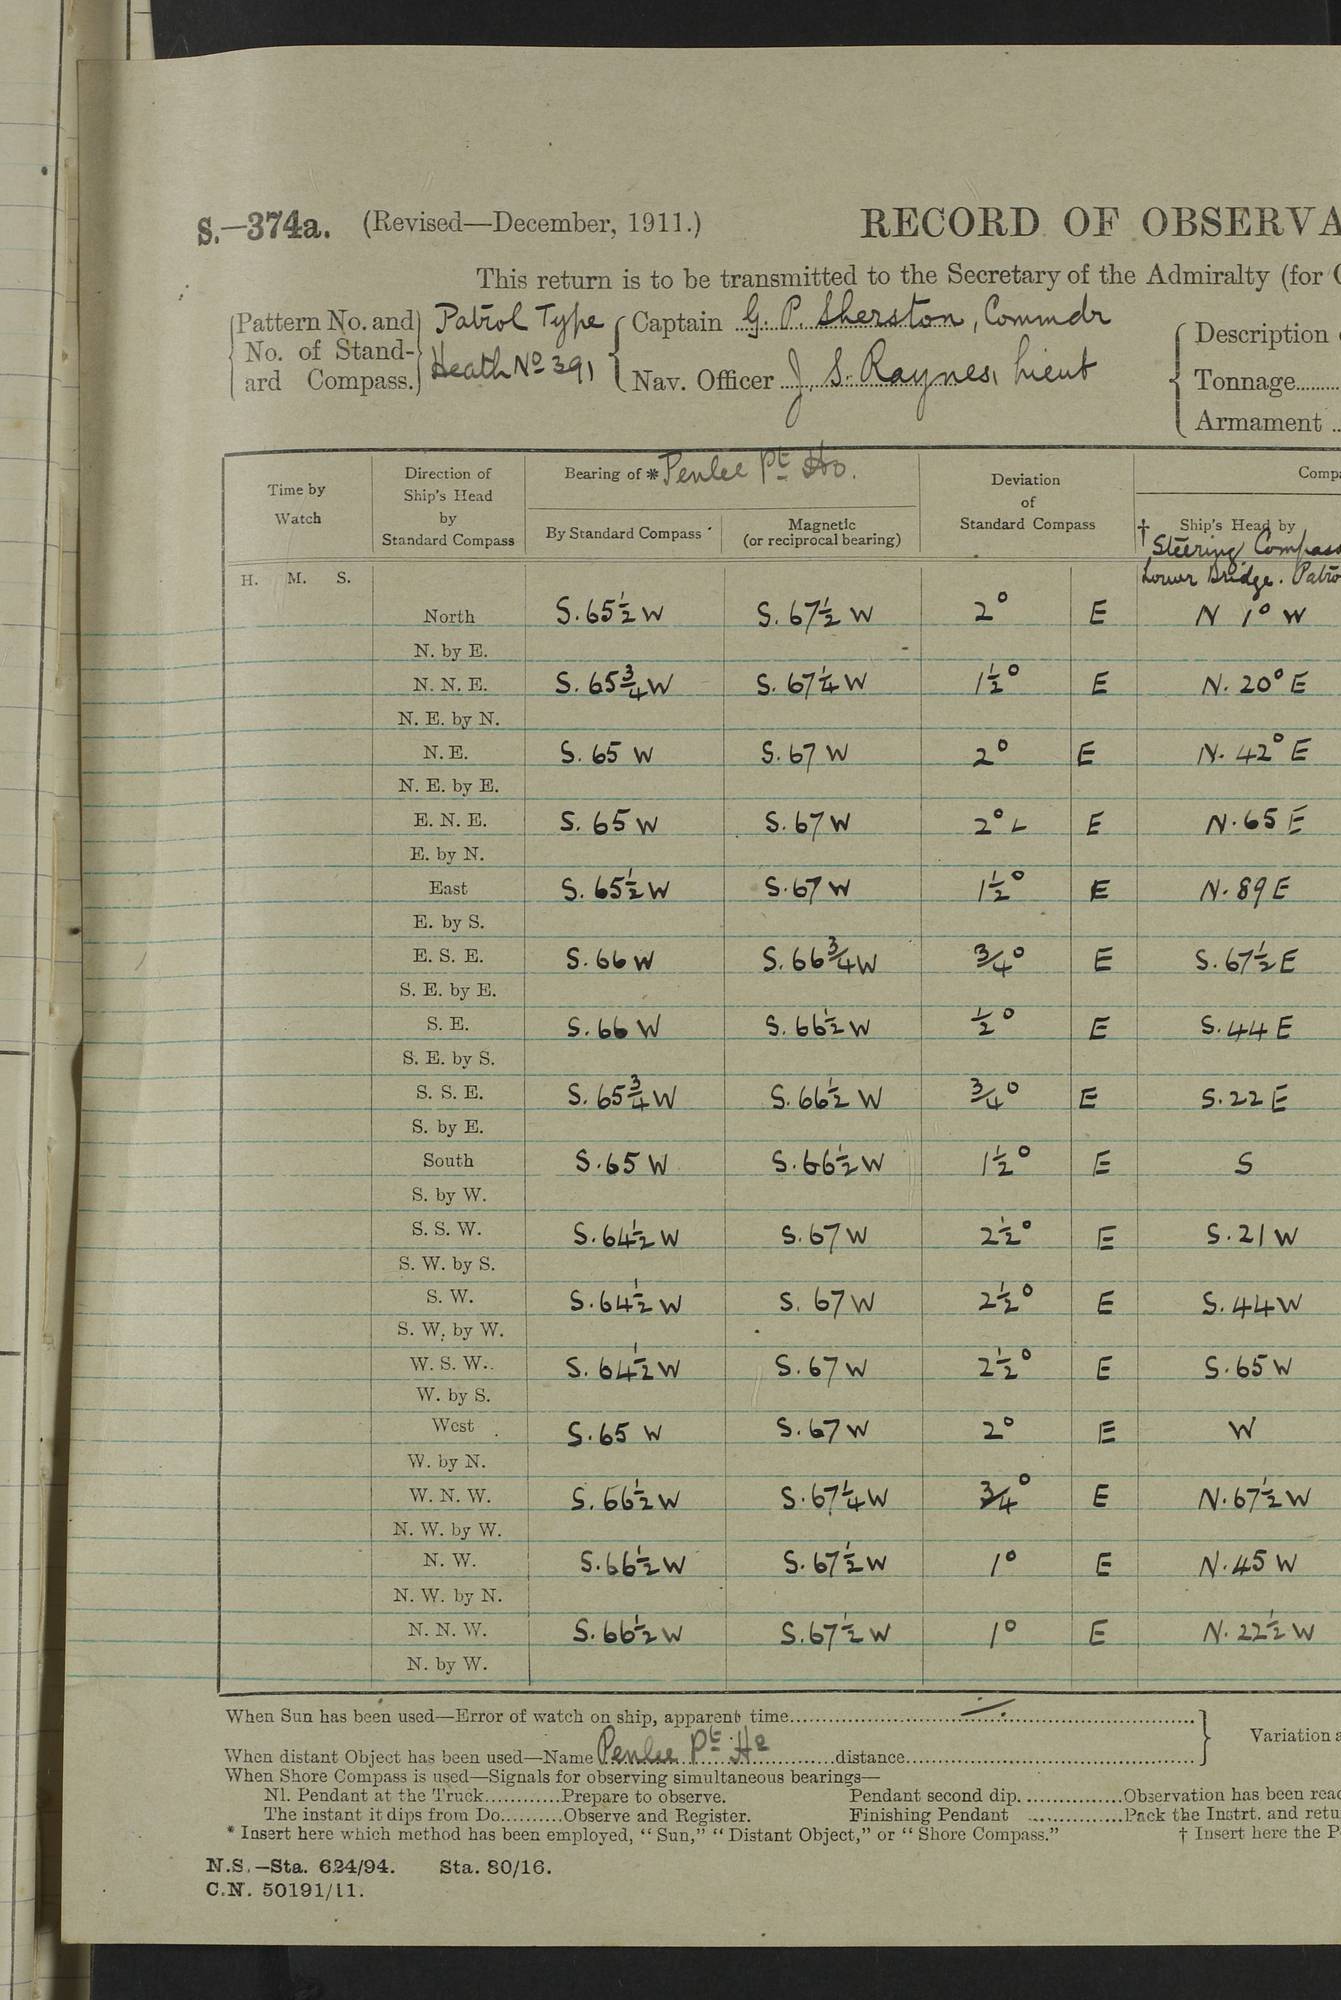 S.—374a. (Revised—December, 1911.) RECORD OF OBSERVA
This return is to be transmitted to the Secretary of the Admiralty (for
Pattern No. and No. of Standard Compass. Patrol Type Heath No 391
Captain G. P. Sherston, Commdr
Nav. Officer J. S. Raynes, Lieut
Description
Tonnage
Armament
Time by Watch
Direction of Ship's Head by Standard Compass
Bearing of * Penlee Pt Ho.
By Standard Compass
Magnetic (or reciprocal bearing)
Deviation of Standard Compass
Comp
† Ship's Head by Steering Compass
Lower Bridge. Patro
H. M. S.
North S. 65½ W S. 67½ W 2° E N 1° W
N. by E.
N. N. E. S. 65¾ W S. 67¼ W 1½° E N. 20° E
N. E. by N.
N. E. S. 65 W S. 67 W 2° E N. 42° E
N. E. by E.
E. N. E. S. 65 W S. 67 W 2° E N. 65 E
E. by N.
East S. 65½ W S. 67 W 1½° E N. 89 E
E. by S.
E. S. E. S. 66 W S. 66¾ W ¾° E S. 67½ E
S. E. by E.
S. E. S. 66 W S. 66½ W ½° E S. 44 E
S. E. by S.
S. S. E. S. 65¾ W S. 66½ W ¾° E S. 22 E
S. by E.
South S. 65 W S. 66½ W 1½° E S
S. by W.
S. S. W. S. 64½ W S. 67 W 2½° E S. 21 W
S. W. by S.
S. W. S. 64½ W S. 67 W 2½° E S. 44 W
S. W. by W.
W. S. W. S. 64½ W S. 67 W 2½° E S. 65 W
W. by S.
West S. 65 W S. 67 W 2° E W
W. by N.
W. N. W. S. 66½ W S. 67¼ W ¾° E N. 67½ W
N. W. by W.
N. W. S. 66½ W S. 67½ W 1° E N. 45 W
N. W. by N.
N. N. W. S. 66½ W S. 67½ W 1° E N. 22½ W
N. by W.
When Sun has been used—Error of watch on ship, apparent time
Variation a
When distant Object has been used—Name Penlee Pt Ho distance
When Shore Compass is used—Signals for observing simultaneous bearings—
Nl. Pendant at the Truck............Prepare to observe. Pendant second dip................Observation has been read
The instant it dips from Do..........Observe and Register. Finishing Pendant ...............Pack the Instrt. and retu
* Insert here which method has been employed, "Sun," "Distant Object," or "Shore Compass." † Insert here the P
N.S.—Sta. 624/94. Sta. 80/16.
C.N. 50191/11.